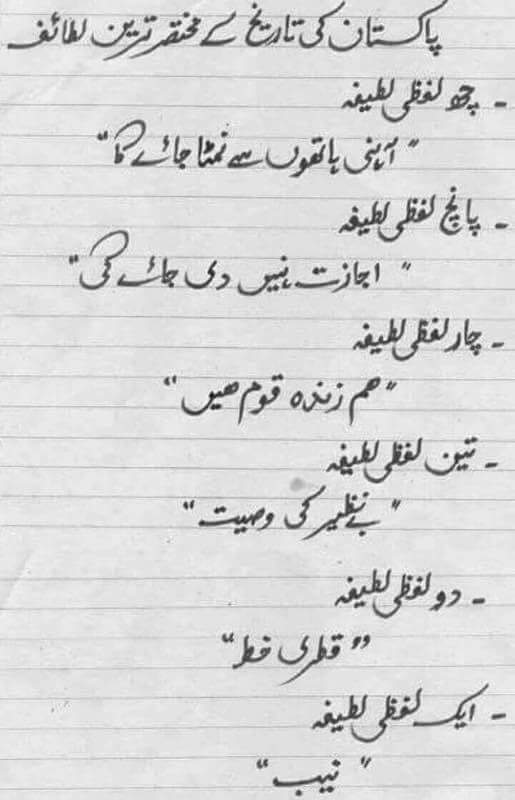 پاکستان کی تاریخ کے مختصر ترین لطائف
- چھ لفظی لطیفہ
"آہنی ہاتھوں سے نمٹا جائے گا"
- پانچ لفظی لطیفہ
"اجازت نہیں دی جائے گی"
- چار لفظی لطیفہ
"ھم زندہ قوم ھیں"
- تین لفظی لطیفہ
"بے نظیر کی وصیت"
- دو لفظی لطیفہ
"قطری خط"
- ایک لفظی لطیفہ
"نیب"